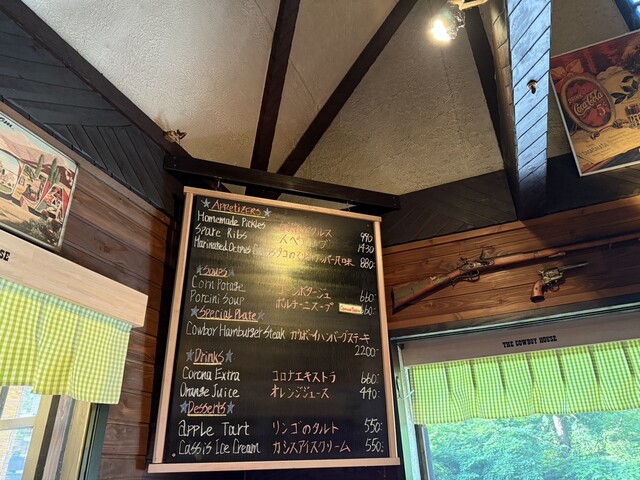 ★Appetizers★
Homemade Pickles ピクルス 990
Spare Ribs スペアリブ 1430
Marinated Octopus 風味 880-
★Soups★
Corn Potage コーンポタージュ 660-
Porcini Soup ポルチーニスープ
★Special Plate★
Cowboy Hamburger Steak カウボーイハンバーグステーキ
2200-
★Drinks★
Corona Extra コロナエキストラ 660-
Orange Juice オレンジジュース 440-
★Desserts★
Apple Tart リンゴのタルト 550-
Cassis Ice Cream カシスアイスクリーム 550-
THE COWBOY HOUSE
DRINK
Coca-Cola
5¢